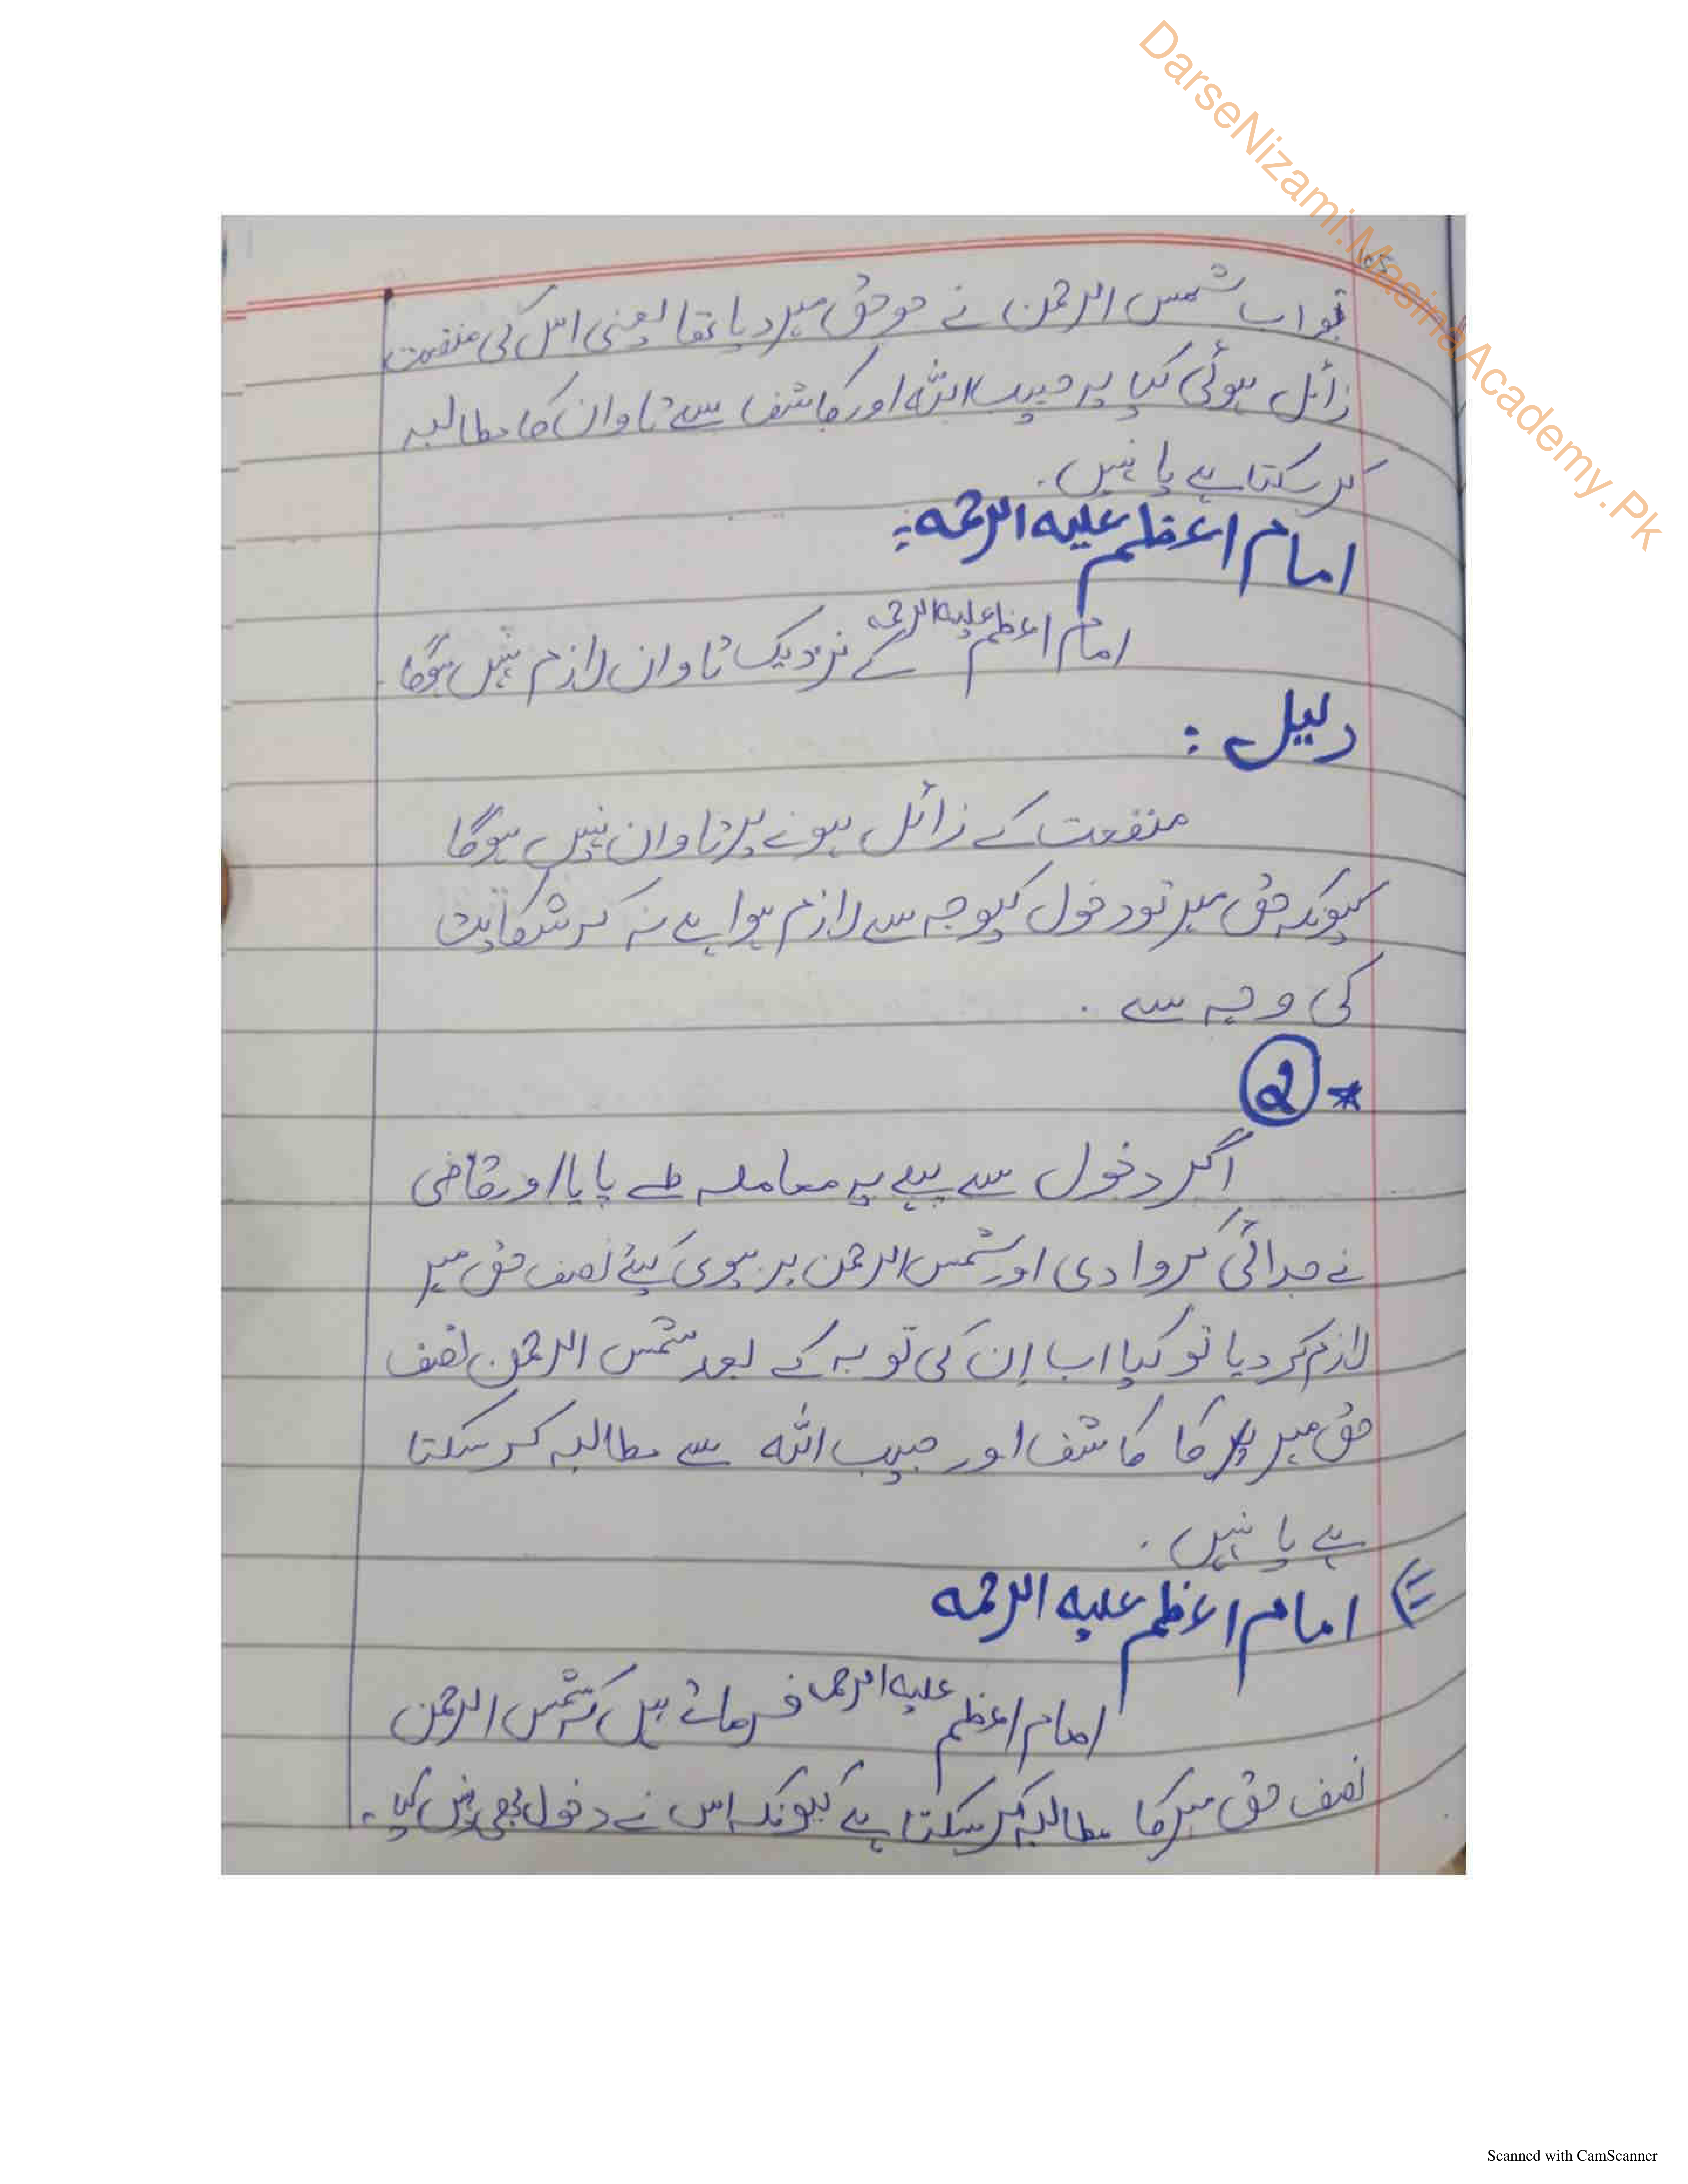 DarseNizami.MadinaAcademy.Pk
تو اب شمس الرحمن نے جو حق میر دیا تھا یعنی اس کی منفعت
زائل ہوئی کیا یہ حبیب اللہ اور کاشف سے تاوان کا مطالبہ
کر سکتا ہے یا نہیں .
امام اعظم علیہ الرحمہ :
امام اعظم علیہ الرحمہ کے نزدیک تاوان لازم نہیں ہوگا
دلیل :
منفعت کے زائل ہونے پر تاوان نہیں ہوگا
کیونکہ حق میر تو دخول کیوجہ سے لازم ہوا ہے نہ کہ شکایت
کی وجہ سے .
* 2
اگر دخول سے پہلے یہ معاملہ طے پایا اور قاضی
نے جدائی کروا دی اور شمس الرحمن پر بیوی کیلئے نصف حق میر
لازم کر دیا تو کیا اب ان کی توبہ کے بعد شمس الرحمن نصف
حق میر کا کاشف اور حبیب اللہ سے مطالبہ کر سکتا
ہے یا نہیں .
امام اعظم علیہ الرحمہ
امام اعظم علیہ الرحمہ فرماتے ہیں کہ شمس الرحمن
نصف حق میر کا مطالبہ کر سکتا ہے کیونکہ اس نے دخول بھی نہیں کیا .
Scanned with CamScanner